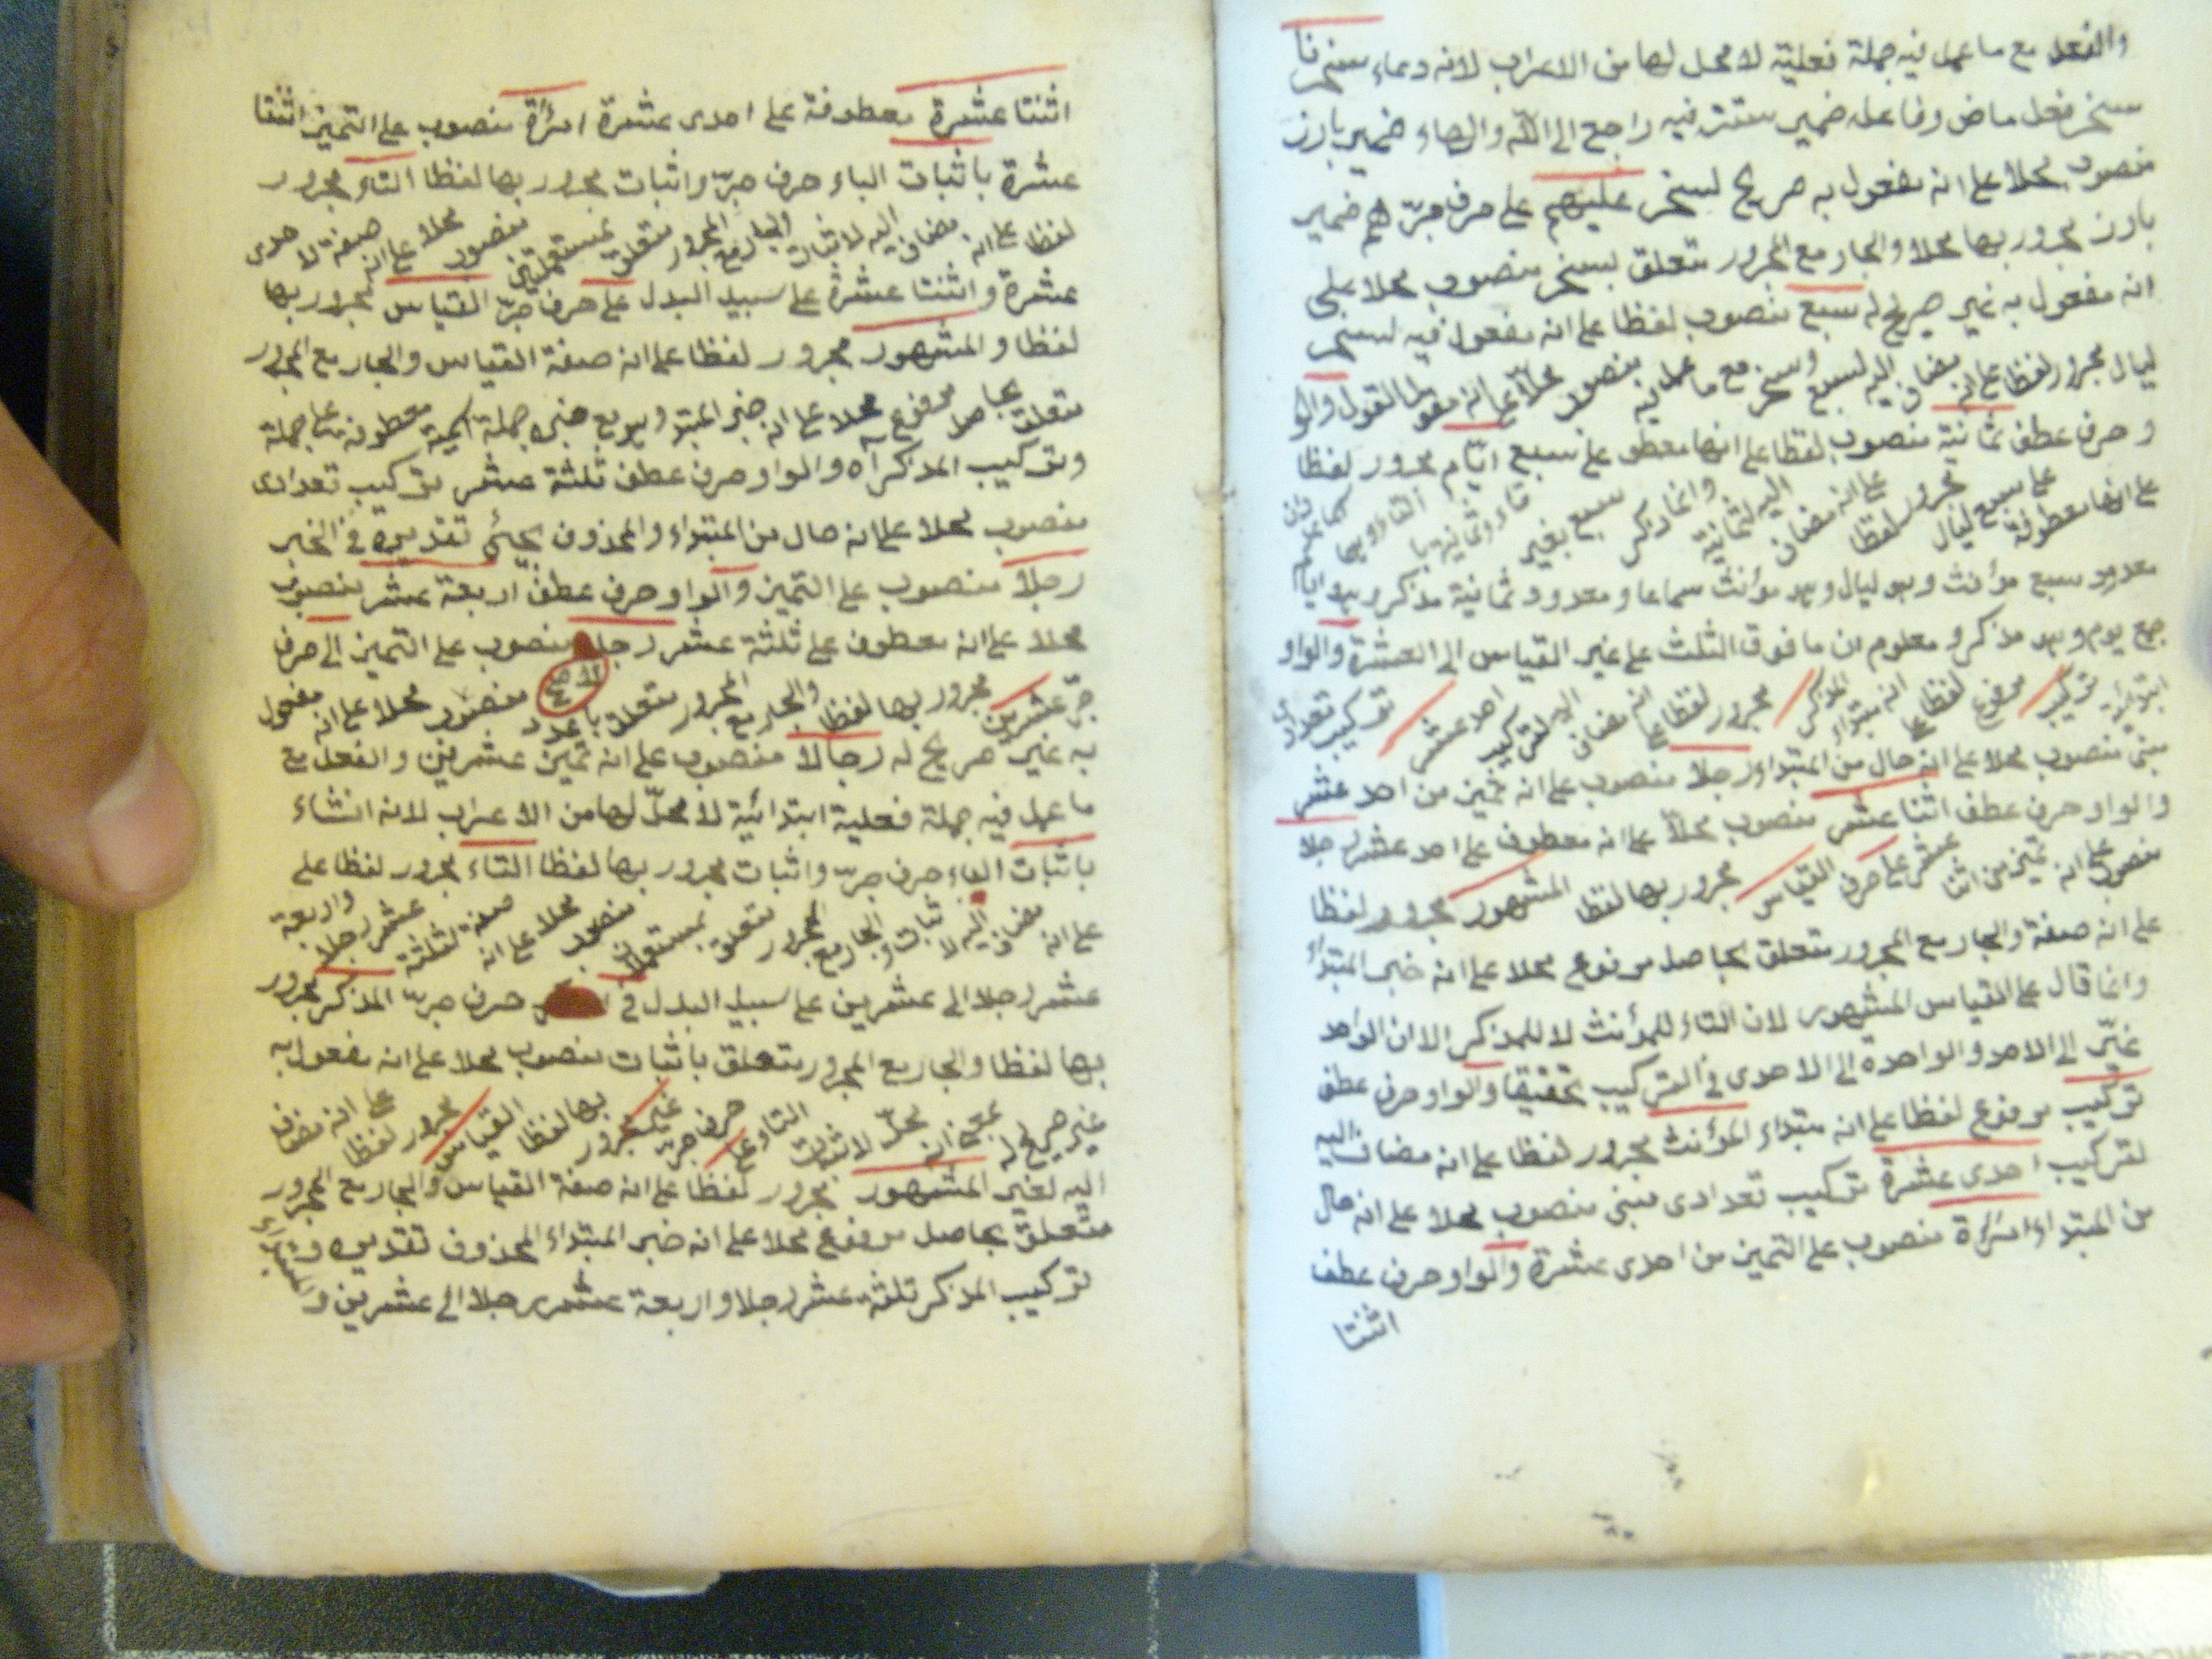 والفعل مع ما عمل فيه جملة فعلية لا محل لها من الاعراب لانه دعاء سخرها
سخر فعل ماض وفاعله ضمير مستتر فيه راجع الى الله والهاء ضمير بارز
منصوب محلا على انه مفعول به صريح لسخر عليهم على حرف جرّ هم ضمير
بارز مجرور بها محلا والجار مع المجرور متعلق لسخر منصوب محلا على
انه مفعول به غير صريح له سبع منصوب لفظا على انه مفعول فيه لسخر
ليال مجرور لفظا على انه مضاف اليه لسبع وسخر مع ما عمل فيه منصوب محلا على انه مقول القول والواو
و حرف عطف ثمانية منصوب لفظا على انها معطوف على سبع ايام مجرور لفظا
على انها معطوفة على سبع ليال مجرور لفظا على انه مضاف اليه لثمانية وانما ذكر سبع بغير تاء وثمانية بالتاء
معدود سبع مؤنث وهو ليال وهو مؤنث سماعا ومعدود ثمانية مذكر وهو ايام
جمع يوم وهو مذكر ومعلوم ان ما فوق الثلث على غير القياس الى العشرة والواو
ابتدائية تركيب مرفوع لفظا على انه مبتداء المذكر مجرور لفظا على انه مضاف اليه لتركيب احد عشر تركيب تعدادى
مبنى منصوب محلا على انه حال من المبتداء رجلا منصوب على انه تميز من احد عشر
والواو حرف عطف اثنا عشر منصوب محلا على انه معطوف على احد عشر رجلا
منصوب على انه تميز من اثنا عشر على حرف القياس مجرور بها لفظا المشهور مجرور لفظا
على انه صفة والجار مع المجرور متعلق بحاصل مرفوع محلا على انه خبر المبتداء
وانما قال على القياس المشهور لان التاء للمؤنث لا للمذكر الا ان الواحد
غيّر الى الاحد والواحدة الى الاحدى فى التركيب تحقيقا والواو حرف عطف
تركيب مرفوع لفظا على انه مبتداء المؤنث مجرور لفظا على انه مضاف اليه
لتركيب احدى عشرة تركيب تعدادى مبنى منصوب محلا على انه حال
من المبتداء امرأة منصوب على التميز من احدى عشرة والواو حرف عطف
اثنتا
اثنتا عشرة معطوفة على احدى عشرة امرأة منصوب على التميز اثنتا
عشرة باثبات الباء حرف جرّ واثبات مجرور بها لفظا التاء مجرور
لفظا على انه مضاف اليه لاثبات والجار مع المجرور متعلق بمستعملتين منصوب محلا على انه صفة لاحدى
عشرة واثنتا عشرة على سبيل البدل على حرف جرّ القياس مجرور بها
لفظا والمشهور مجرور لفظا على انه صفة القياس والجار مع المجرور
متعلق بحاصل مرفوع محلا على انه خبر المبتداء وهو مع خبره جملة اسمية معطوفة على جملة
وتركيب المذكر اه والواو حرف عطف ثلثة عشر تركيب تعدادى
منصوب محلا على انه حال من المبتداء والمحذوف يجئ تقديره فى الخبر
رجلا منصوب على التميز والواو حرف عطف اربعة عشر منصوب
محلا على انه معطوف على ثلثة عشر رجلا منصوب على التميز الى حرف
جرّ عشرين مجرور بها لفظا والجار مع المجرور متعلق باعدد منصوب محلا على انه مفعول
به غير صريح له رجالا منصوب على انه تميز عشرين والفعل مع
ما عمل فيه جملة فعلية ابتدائية لا محلّ لها من الاعراب لانه انشاء
باثبات الباء حرف جرّ واثبات مجرور بها لفظا التاء مجرور لفظا على
على انه مضاف اليه لاثبات والجار مع المجرور متعلق بمستعملان منصوب محلا على انه صفة لثلثة عشر رجلا واربعة
عشر رجلا الى عشرين على سبيل البدل فى حرف جرّ المذكر مجرور
بها لفظا والجار مع المجرور متعلق باثبات منصوب محلا على انه مفعول به
غير صريح له محلّ لاثبات التاء على حرف جرّ غير مجرور بها لفظا القياس مجرور لفظا على انه مضاف
اليه لغير المشهور مجرور لفظا على انه صفة القياس والجار مع المجرور
متعلق بحاصل مرفوع محلا على انه خبر المبتداء المحذوف تقديره و
تركيب المذكر ثلثة عشر رجلا واربعة عشر رجلا الى عشرين و